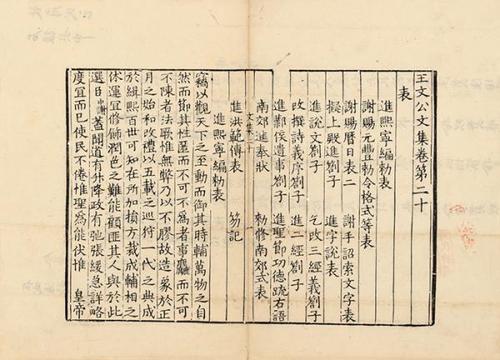 王文公文集卷第二十
表
進熙寧編勑表
謝賜元豐勑令格式等表
謝賜曆日表二 謝手詔索文字表
擬上殿進劄子 進字說表
進說文劄子 乞改三經義劄子
改撰詩義序劄子 進二經劄子
進鄴侯遺事劄子 進聖節功德疏右語
南郊進奉狀 勑修南郊式表
進洪範傳表 笏記
進熙寧編勑表
竊以觀天下之至動而御其時輔萬物之自
然而節其性匿而不可不為者事麤而不可
不陳者法顧惟無弊乃以不膠故造象於正
月之始和改禮以五載之巡狩一代之典成
於緝熙百世可知在所加損方裁成輔相之
休運宜修飾潤色之難能顧匪其人與於此
選臣中謝蓋聞道有升降政有弛張緩急詳略
度宜而已使民不倦惟聖為能伏惟 皇帝